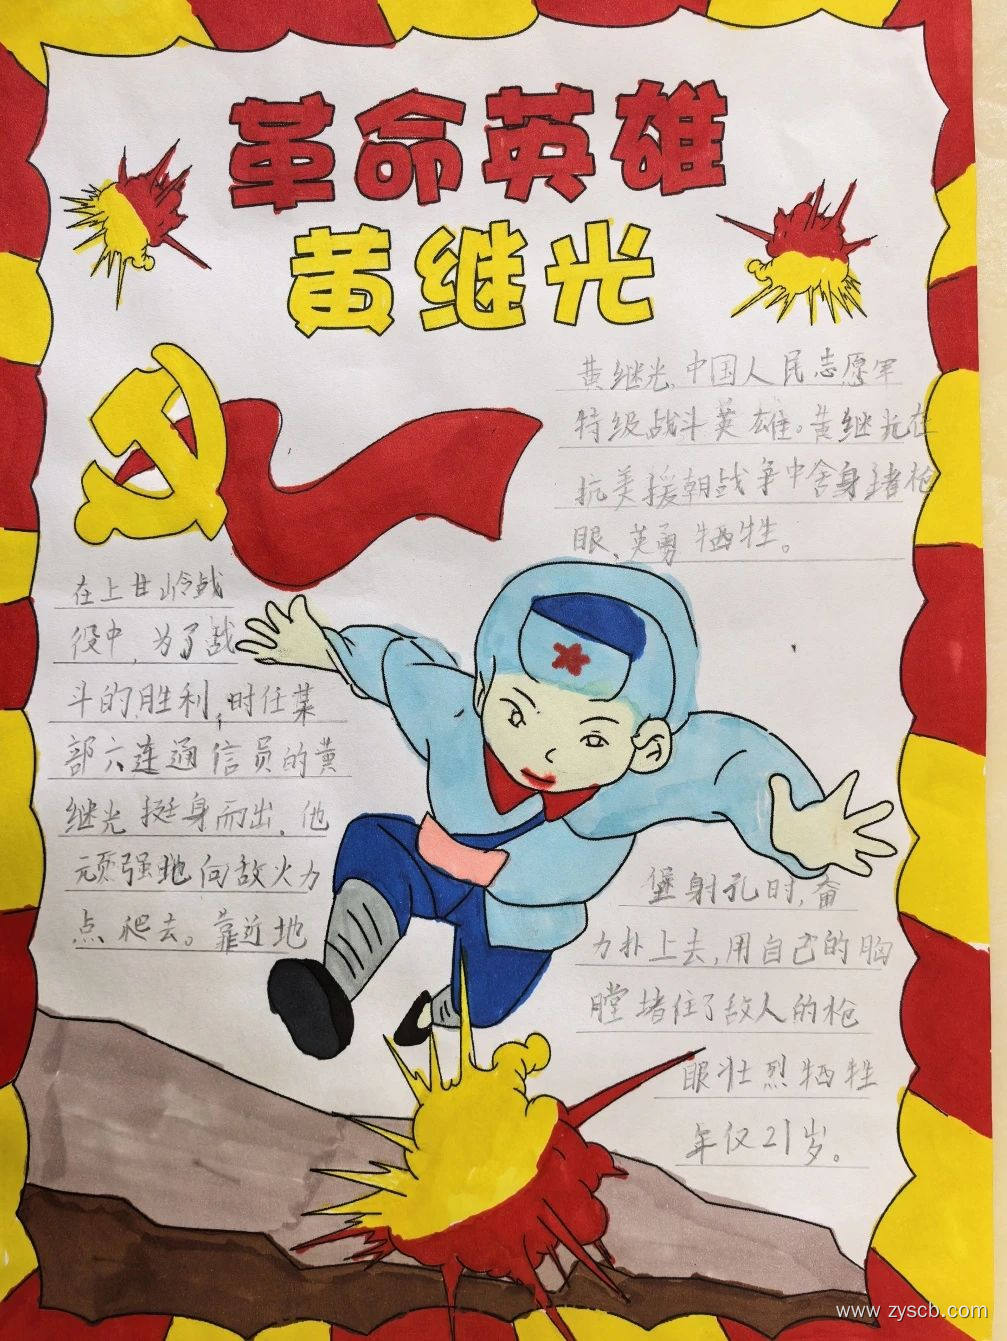 革命英雄
黄继光
黄继光,中国人民志愿军
特级战斗英雄。黄继光在
抗美援朝战争中舍身堵枪
眼、英勇牺牲。
在上甘岭战
役中,为了战
斗的胜利,时任某
部六连通信员的黄
继光挺身而出,他
顽强地向敌火力
点爬去。靠近地
堡射孔时,奋
力扑上去,用自己的胸
膛堵住了敌人的枪
眼壮烈牺牲
年仅21岁。
www.zyscb.com